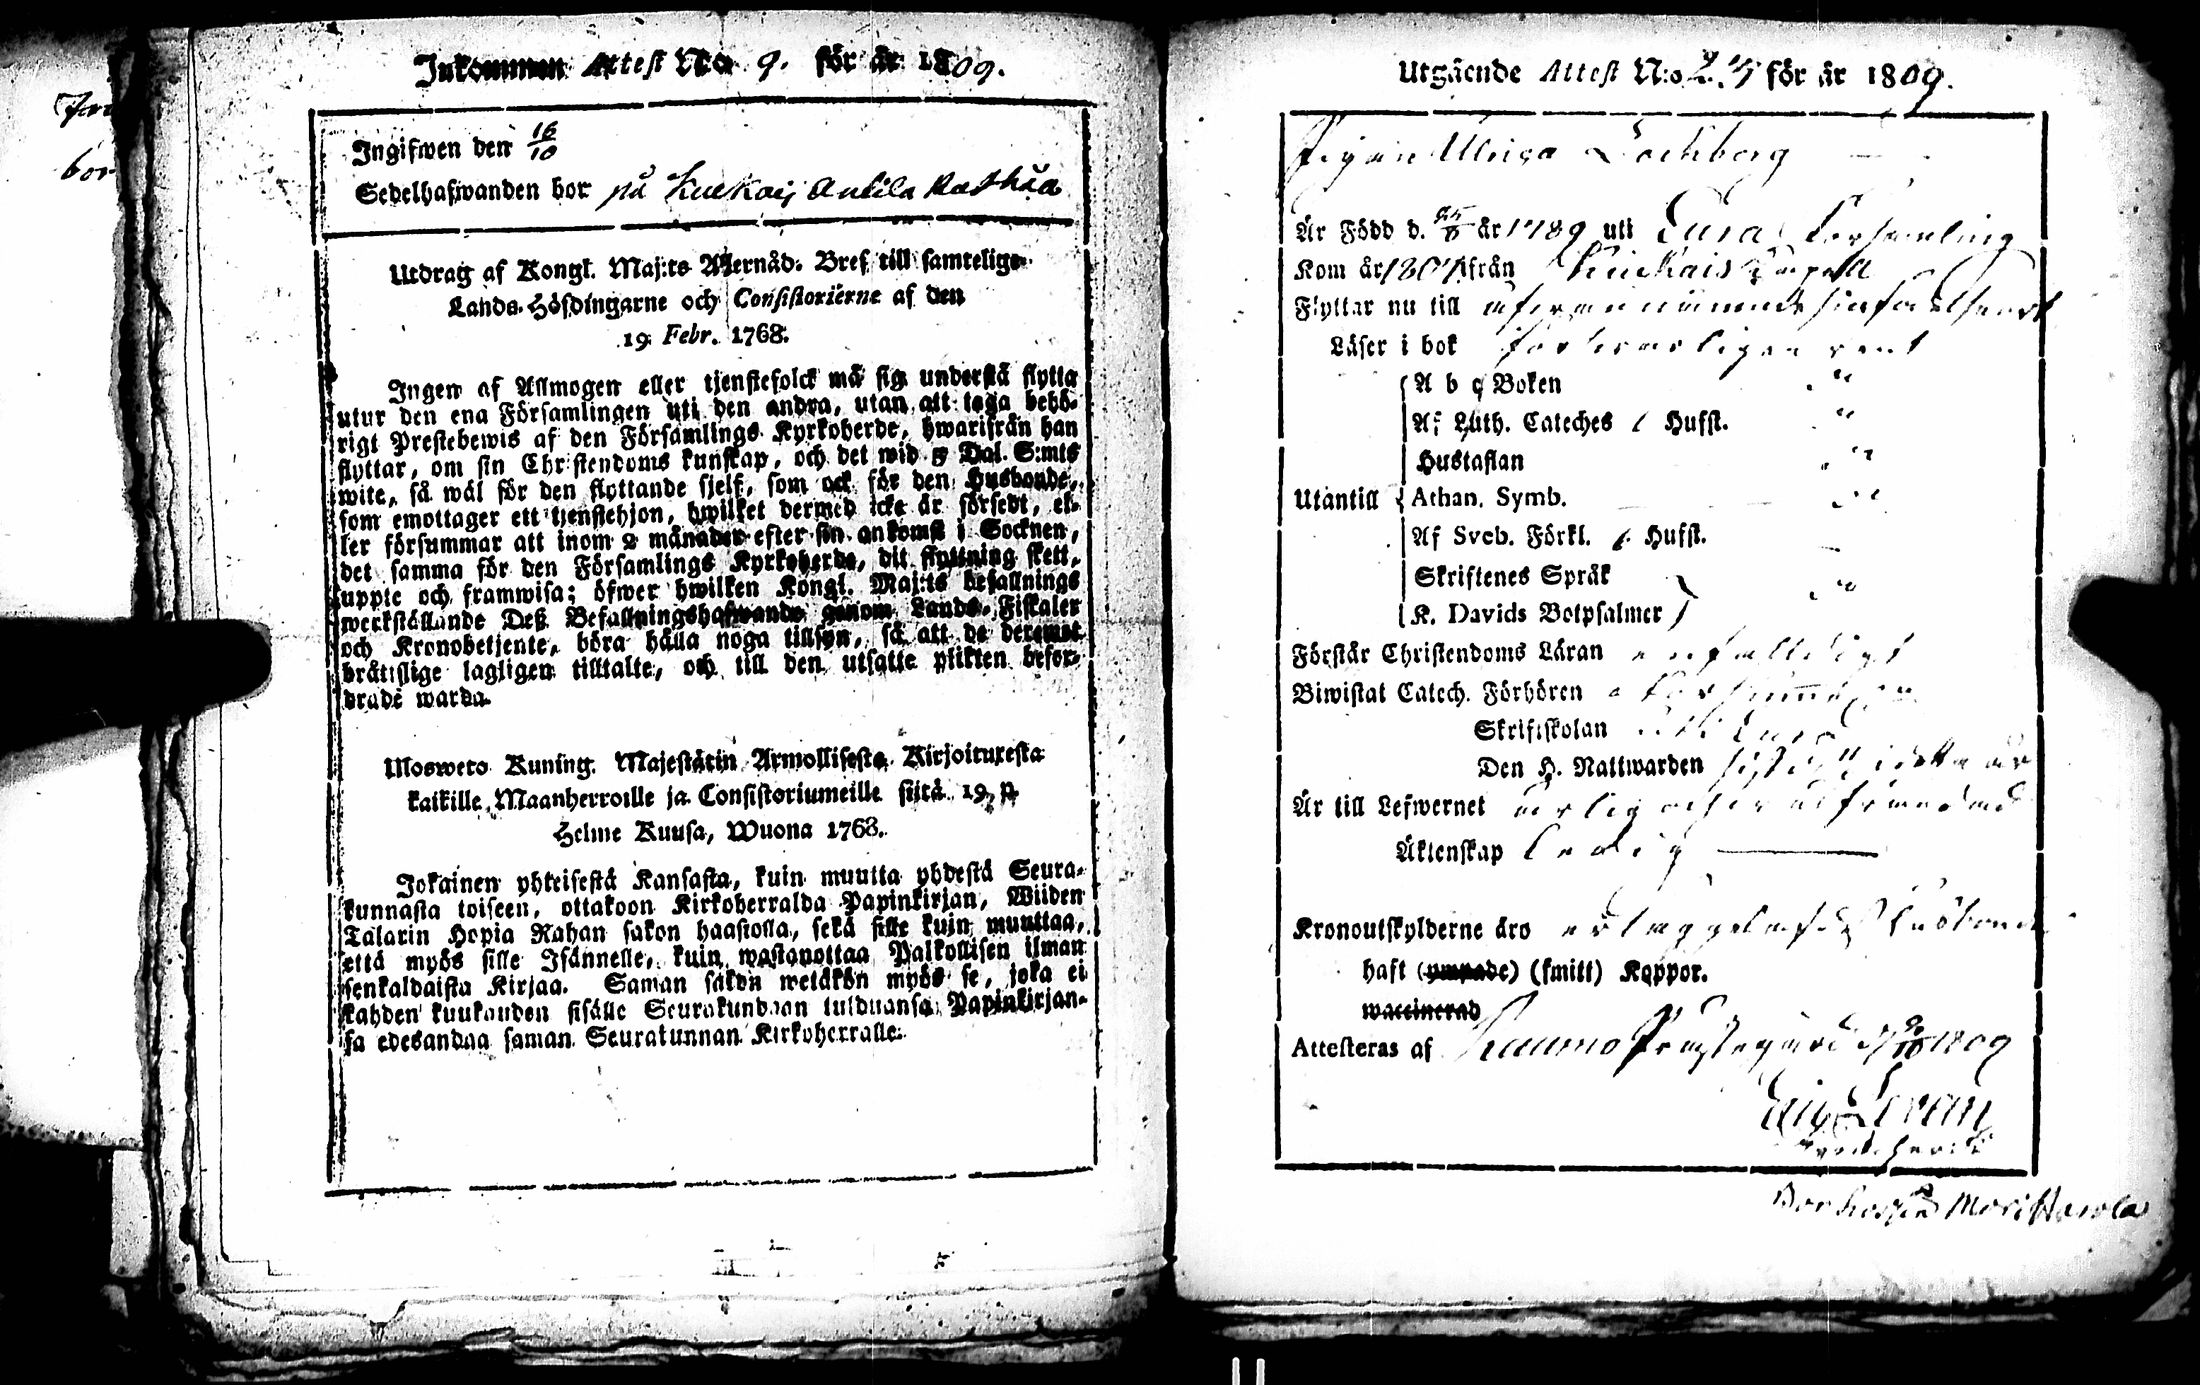 Inkommen Attest N:o 9. för år 1809.
Ingifwen den 16/10
Sedelhafwanden bor på Kiukais Antila
Utdrag af Kongl. Maj:ts Allernåd. Bref till samtelige
Lands-Höfdingarne och Consistorierne af den
19 Febr. 1768.
Ingen af Allmogen eller tjenstefolck må sig understå flytta
utur den ena Församlingen uti den andra, utan att taga behö-
rigt Prestebewis af den Församlings Kyrkoherde, hwarifrån han
flyttar, om sin Christendoms kunskap, och det wid 5 Dal. S:mts
wite, så wäl för den flyttande sjelf, som ock för den Husbonde,
som emottager ett tjenstehjon, hwilket dermed icke är försedt, el-
ler försummar att inom 2 månader efter sin ankomst i Socknen,
det samma för den Församlings Kyrkoherde, dit flyttning skett,
uppte och framwisa; öfwer hwilken Kongl. Maj:ts befallnings
werkställande Deß Befallningshafwande genom Lands-Fiskaler
och Kronobetjente, böra hålla noga tillsyn, så att de deremot
bråtislige lagligen tilltalte, och till den utsatte plikten befor-
drade warda.
Mosweto Kuning. Majestätin Armollisesta Kirjoituxesta
kaikille Maanherroille ja Consistoriumeille siitä 19 p.
Helme Kuusa, Wuona 1768.
Jokainen yhteisestä Kansasta, kuin muutta yhdestä Seura-
kunnasta toiseen, ottakoon Kirkoherralda Papinkirjan, Wiiden
Talarin Hopia Rahan sakon haastolla, sekä sille kuin muuttaa,
että myös sille Isännelle, kuin wastanottaa Palkollisen ilman
senkaldaista Kirjaa. Saman sakon wetäkön myös se, joka ei
kahden kuukauden sisälle Seurakundaan tulduansa Papinkirjan-
sa edesandaa saman Seurakunnan Kirkoherralle.
Utgående Attest N:o för år 1809.
Pigan Ulrica
Är Född d. år 1789 uti Eura Församling
Kom år 1807 ifrån Kiukais Capell
Flyttar nu till
Läser i bok försvarligen rent
A b c Boken "
Af Luth. Cateches Hufst. "
Hustaflan "
Utantill Athan. Symb. "
Af Sveb. Förkl. Hufst.
Skriftenes Språk "
K. Davids Botpsalmer
Förstår Christendoms Läran enfalldigt
Biwistat Catech. Förhören
Skriftskolan
Den H. Nattwarden sist i detta år
Är till Lefwernet ärlig och
Äktenskap ledig
Kronoutskylderne äro erlagge af des husbonde
haft (ympade) (smitt) Koppor.
waccinerad
Attesteras af Raumo Prästegård 1809